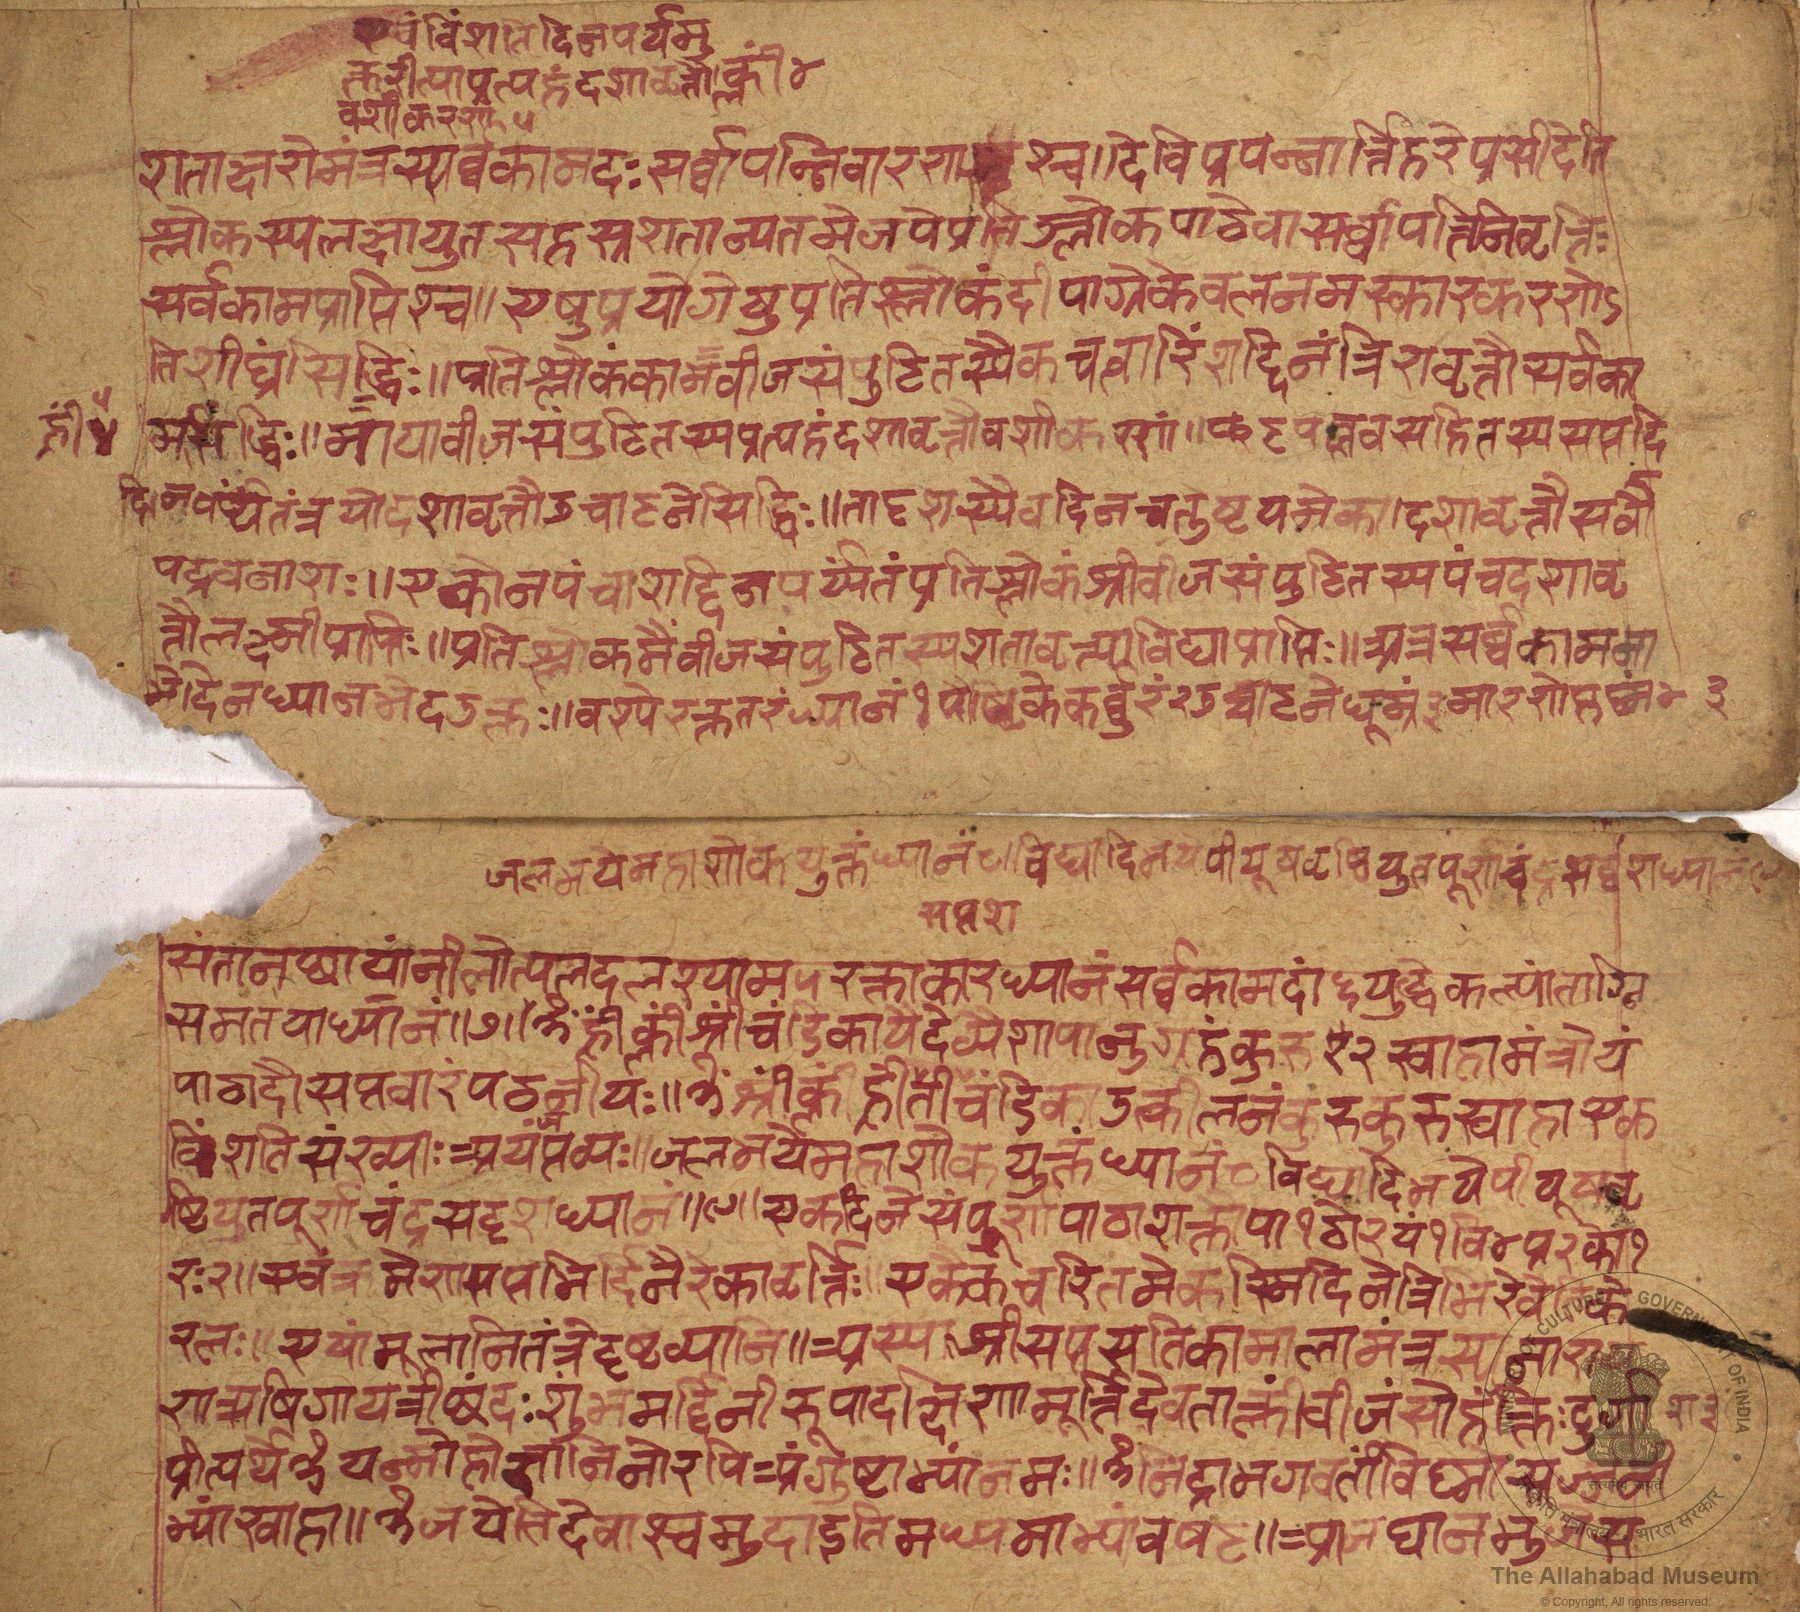 एवंविंशतिदिनपर्यमु
क्तरीत्याप्रत्यहंदशावृत्तौ क्लीं ४
वशीकरणं ५
शताक्षरोमंत्रस्सर्वकामदः सर्वापन्निवारण श्च ॥ देविप्रपन्नार्त्तिहरेप्रसीदेति
श्लोकस्यलक्षायुतसहस्रशतान्यतमेजपेप्रतिश्लोकपाठेवासर्वापत्तिनिवृत्तिः
सर्वकामप्राप्तिश्च ॥ एषुप्रयोगेषुप्रतिश्लोकंदीपाग्रेकेवलनमस्कारकरणेऽ
तिशीघ्रंसिद्धिः ॥ प्रतिश्लोकंकामबीजसंपुटितस्यैकचत्वारिंशद्दिनंत्रिरावृत्तौसर्वका
मसिद्धिः ॥ मायाबीजसंपुटितस्यप्रत्यहंदशावृत्तौवशीकरणं ॥ फट्पल्लवसहितस्यसप्तदि
ह्रीं ५
दिनपर्य्यंतंत्रयोदशावृत्तौउच्चाटनेसिद्धिः ॥ तादृशस्यैवदिनचतुष्टयमेकादशावृत्तौसर्वो
पद्रवनाशः ॥ एकोनपंचाशद्दिनपर्य्यंतंप्रतिश्लोकंश्रीबीजसंपुटितस्यपंचदशावृ
त्तौलक्ष्मीप्राप्तिः ॥ प्रतिश्लोकमैंबीजसंपुटितस्यशतावृत्त्याविद्याप्राप्तिः ॥ अत्रसर्वकामना
भेदेनध्यानभेदउक्तः ॥ वश्येरक्ततरंध्यानं १ पौष्टिकेकर्बुरं २ उच्चाटनेधूम्रं ३ मारणे ४ ३
जलभयेमहाशोकयुक्तंध्यानं ८ विद्यादिभयेपीयूषवृष्टियुतपूर्णचंद्रसदृशध्यानं ९
सप्तश
संतानछायांनीलोत्पलदलश्याम ५ रक्ताकारध्यानंसर्वकामदां ६ युद्धेकल्पांताग्नि
समतयाध्यानं ॥ ७ ॥ ॐ ह्रीं क्लीं श्रीं चंडिकायैदेव्यैशापानुग्रहंकुरु २ स्वाहामंत्रोयं
पाठादौसप्तवारंपठनीयः ॥ ॐ श्रीं क्लीं ह्रीं चंडिकाउत्कीलनंकुरुकुरुस्वाहा एक
विंशतिसंख्याः अयंजप्तव्यः ॥ जलभयेमहाशोकयुक्तंध्यानं ८ विद्यादिभयेपीयूषवृ
ष्टियुतपूर्णचंद्रसदृशध्यानं ॥ ९ ॥ एकदिनेसंपूर्णपाठाशक्तौपा १ ठो २ यं १ वि ४ प्र २ को १
रः २ ॥ एवंक्रमेणसप्तभिर्दिनैरेकावृत्तिः ॥ एकैकचरितमेकस्मिंदिनेत्रिभिरेव
रत्नः ॥ एषांमूलानितंत्रेदृष्टव्यानि ॥ अस्यश्रीसप्तसतिकामालामंत्रस्य नारा
ऋषिगायत्रीछंदः शुंभमर्द्दिनीरूपादक्षिणामूर्त्तिदेवताक्लींबीजंसौ क्तिःदुर्गा
प्रीत्यर्थे ॐ यन्मो ज्ञानिनोरपिअंगुष्टाभ्यांनमः ॥ ॐ निद्राभगवतीं तर्जनी
भ्यांस्वाहा ॥ ॐ जयेतिदेवाश्चमुदा मध्यमाभ्यांवषट् ॥
MINISTRY OF CULTURE GOVERNMENT OF INDIA
सत्यमेव जयते
संस्कृति मंत्रालय भारत सरकार
The Allahabad Museum
© Copyright, All rights reserved.